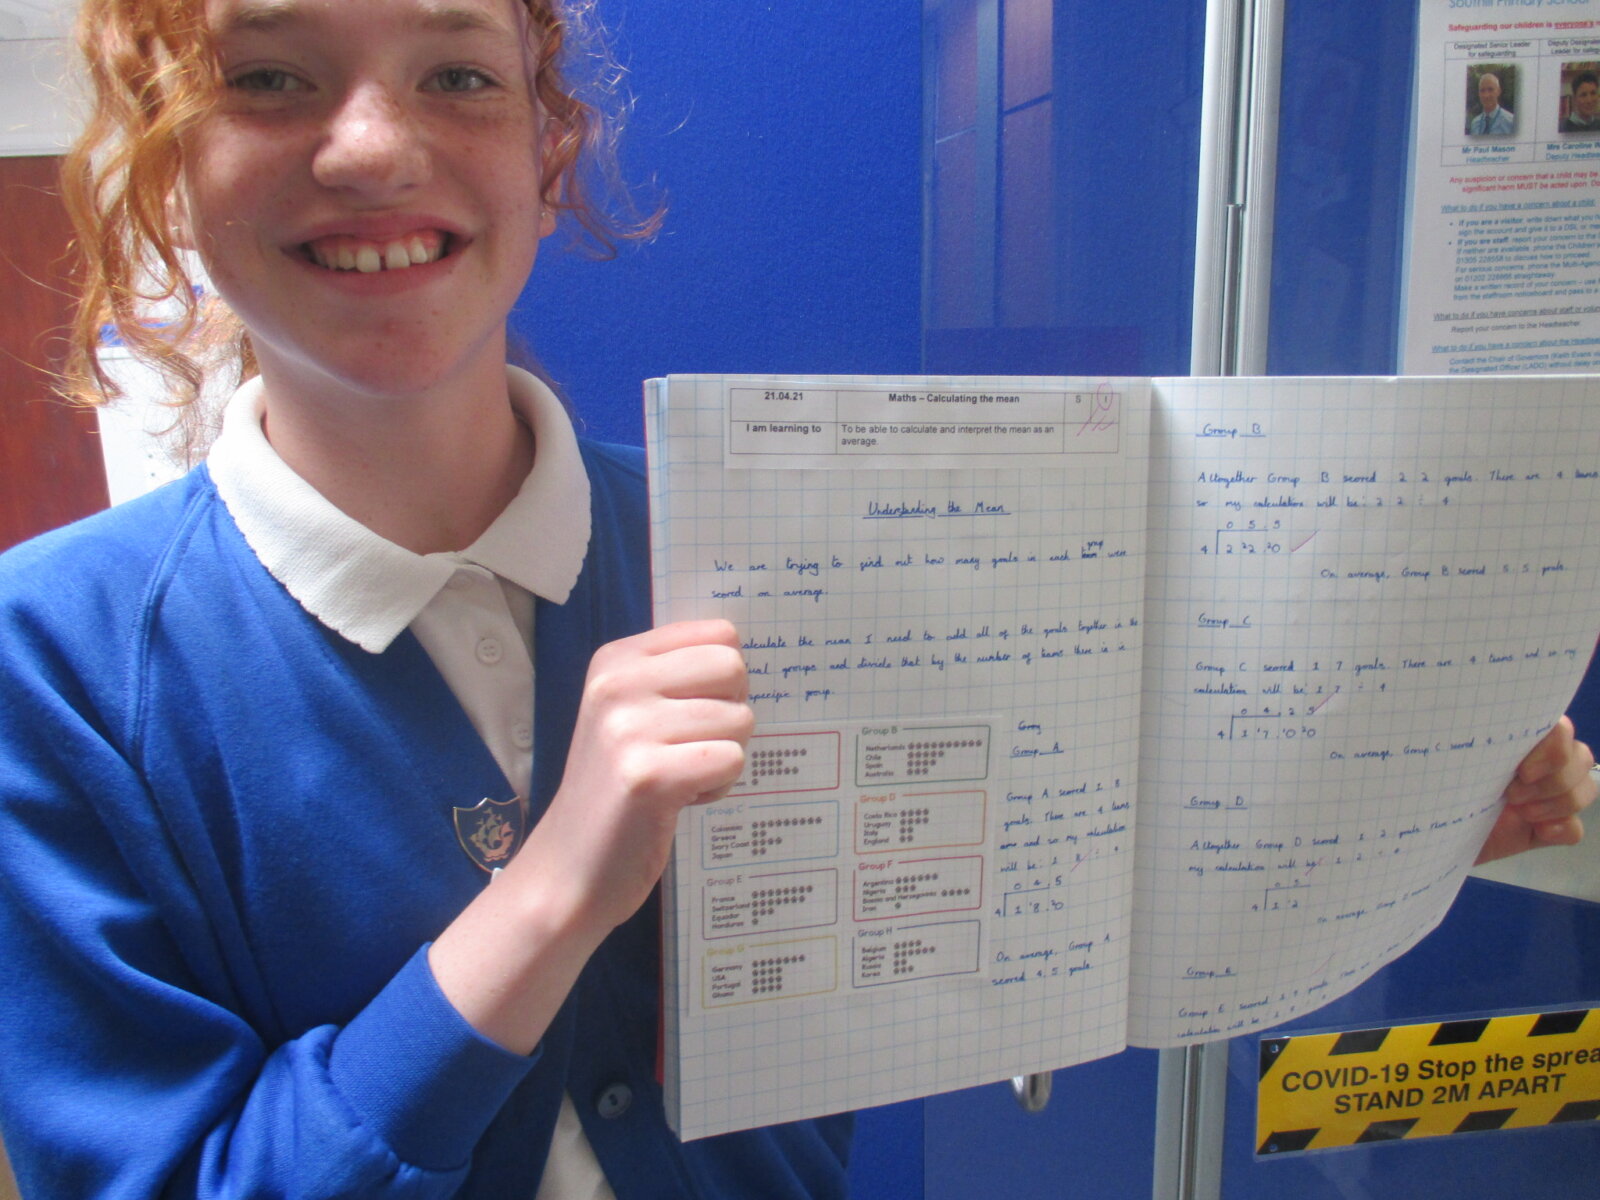 Southill Primary School
Safeguarding our children is everyone's
Designated Senior Leader
for safeguarding
Deputy Designated
Leader for safeg
Mr Paul Mason
Headteacher
Mrs Caroline W
Deputy Headtea
Any suspicion or concern that a child may be
significant harm MUST be acted upon. Do
What to do if you have a concern about a child:
If you are a visitor: write down what you
sign the account and give it to a DSL or
If you are staff: report your concern to the
If neither are available, phone the Children's
01305 228558 to discuss how to proceed.
For serious concerns, phone the Multi-Agen
on 01202 228866 straightaway.
Make a written record of your concern – use
from the staffroom noticeboard and pass to a
What to do if you have concerns about staff or volu
Report your concern to the Headteacher
What to do if you have a concern about the Headtea
Contact the Chair of Governors (Keith Evans
the Designated Officer (LADO) without delay on
21.04.21 Maths – Calculating the mean S I
I am learning to To be able to calculate and interpret the mean as an
average.
Understanding the Mean
We are trying to find out how many goals in each group were
scored on average.
alculate the mean I need to add all of the goals together in the
ual groups and divide that by the number of teams there is in
specific group.
Group B
Netherlands
Chile
Spain
Australia
Group C
Colombia
Greece
Ivory Coast
Japan
Group D
Costa Rica
Uruguay
Italy
England
Group E
France
Switzerland
Equador
Honduras
Group F
Argentina
Nigeria
Bosnia and Herzegovina
Iran
Group G
Germany
USA
Portugal
Ghana
Group H
Belgium
Algeria
Russia
Korea
Group A
Group A scored 18
goals. There are 4 teams
and so my calculation
will be: 18 ÷ 4
04.5
4 18.0
On average, Group A
scored 4.5 goals.
Group B
Altogether Group B scored 22 goals. There are 4 teams
so my calculation will be: 22 ÷ 4
05.5
4 22.0
On average, Group B scored 5.5 goals.
Group C
Group C scored 17 goals. There are 4 teams and so my
calculation will be: 17 ÷ 4
04.25
4 17.00
On average, Group C scored 4.25 goals
Group D
Altogether Group D scored 12 goals. There are 4
my calculation will be: 12 ÷ 4
03
4 12
On average, Group D scored 3
Group E
Group E scored
calculation will be:
COVID-19 Stop the sprea
STAND 2M APART